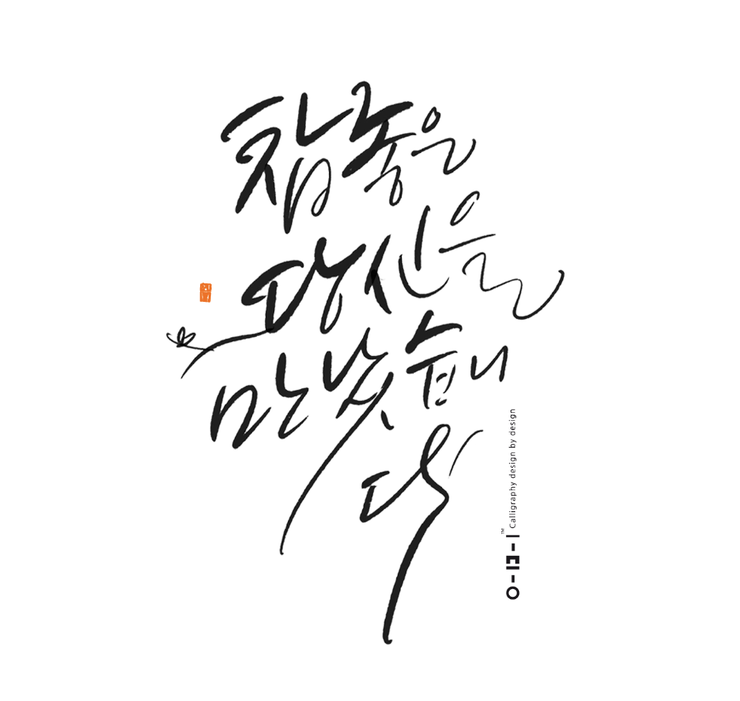 참좋은
당신을
만났습니
다
Calligraphy design by design